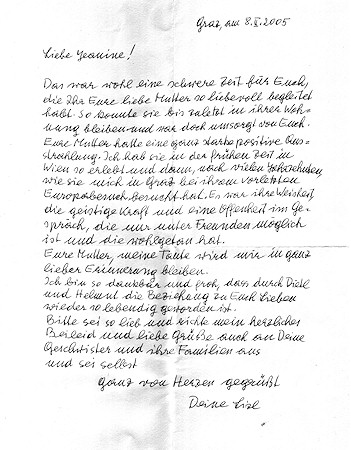 Graz, am 8.X.2005
Liebe Jeanine!
Das war wohl eine schwere Zeit für Euch,
die Ihr Eure liebe Mutter so liebevoll begleitet
habt. So konnte sie bis zuletzt in ihrer Woh-
nung bleiben und war doch umsorgt von Euch.
Eure Mutter hatte eine ganz starke positive Aus-
strahlung. Ich hab sie in der frühen Zeit in
Wien so erlebt und dann, nach vielen Jahrzehnten
wie sie mich in Graz bei ihrem vorletzten
Europabesuch besucht hat. Es war ihre Weisheit,
die geistige Kraft und eine Offenheit im Ge-
spräch, die nur unter Freunden möglich
ist und die wohlgetan hat.
Eure Mutter, meine Tante wird mir in ganz
lieber Erinnerung bleiben.
Ich bin so dankbar und froh, dass durch
und Helmut die Beziehung zu Euch Lieben
wieder so lebendig geworden ist.
Bitte sei so lieb und richte mein herzliches
Beileid und liebe Grüße auch an Deine
Geschwister und ihre Familien aus
und sei selbst
ganz von Herzen gegrüßt
Deine